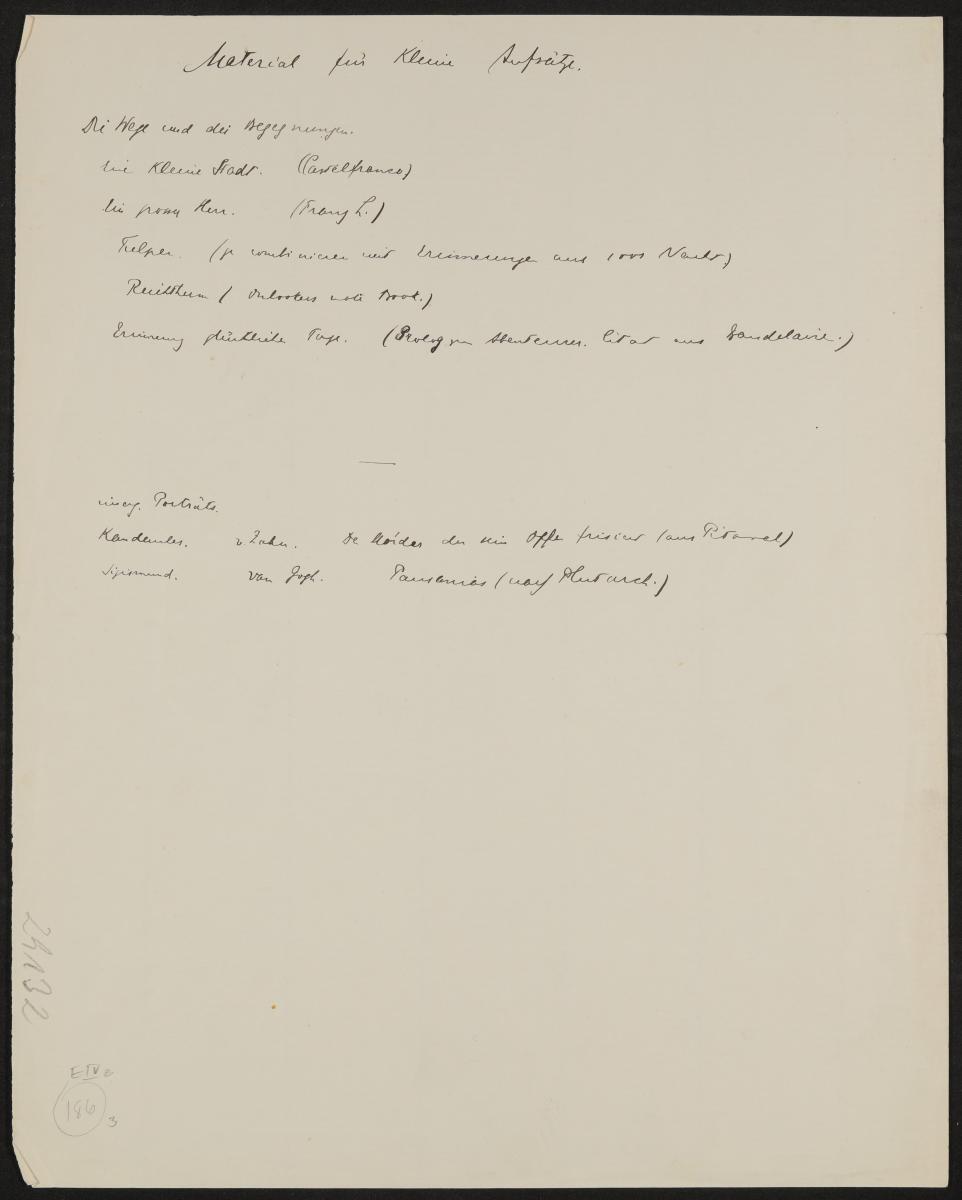 Material für kleine Aufsätze.
Die Wege und die Begegnungen.
Eine kleine Stadt. (Castelfranco)
Ein grosser Herr. (Franz L.)
Tulpen. (zu combinieren mit Erinnerungen aus 1001 Nacht)
Reichthum (Onlookers note Book.)
Erinnerung glücklicher Tage. (Prolog zum Abenteurer. Citat aus Baudelaire.)
imag. Porträts.
Kandaules. v. Zahn. Der Mörder der den Affen frisiert (aus Pitaval)
Sigismund. van Gogh. Pausanias (nach Plutarch.)
24132
E IV
186
3